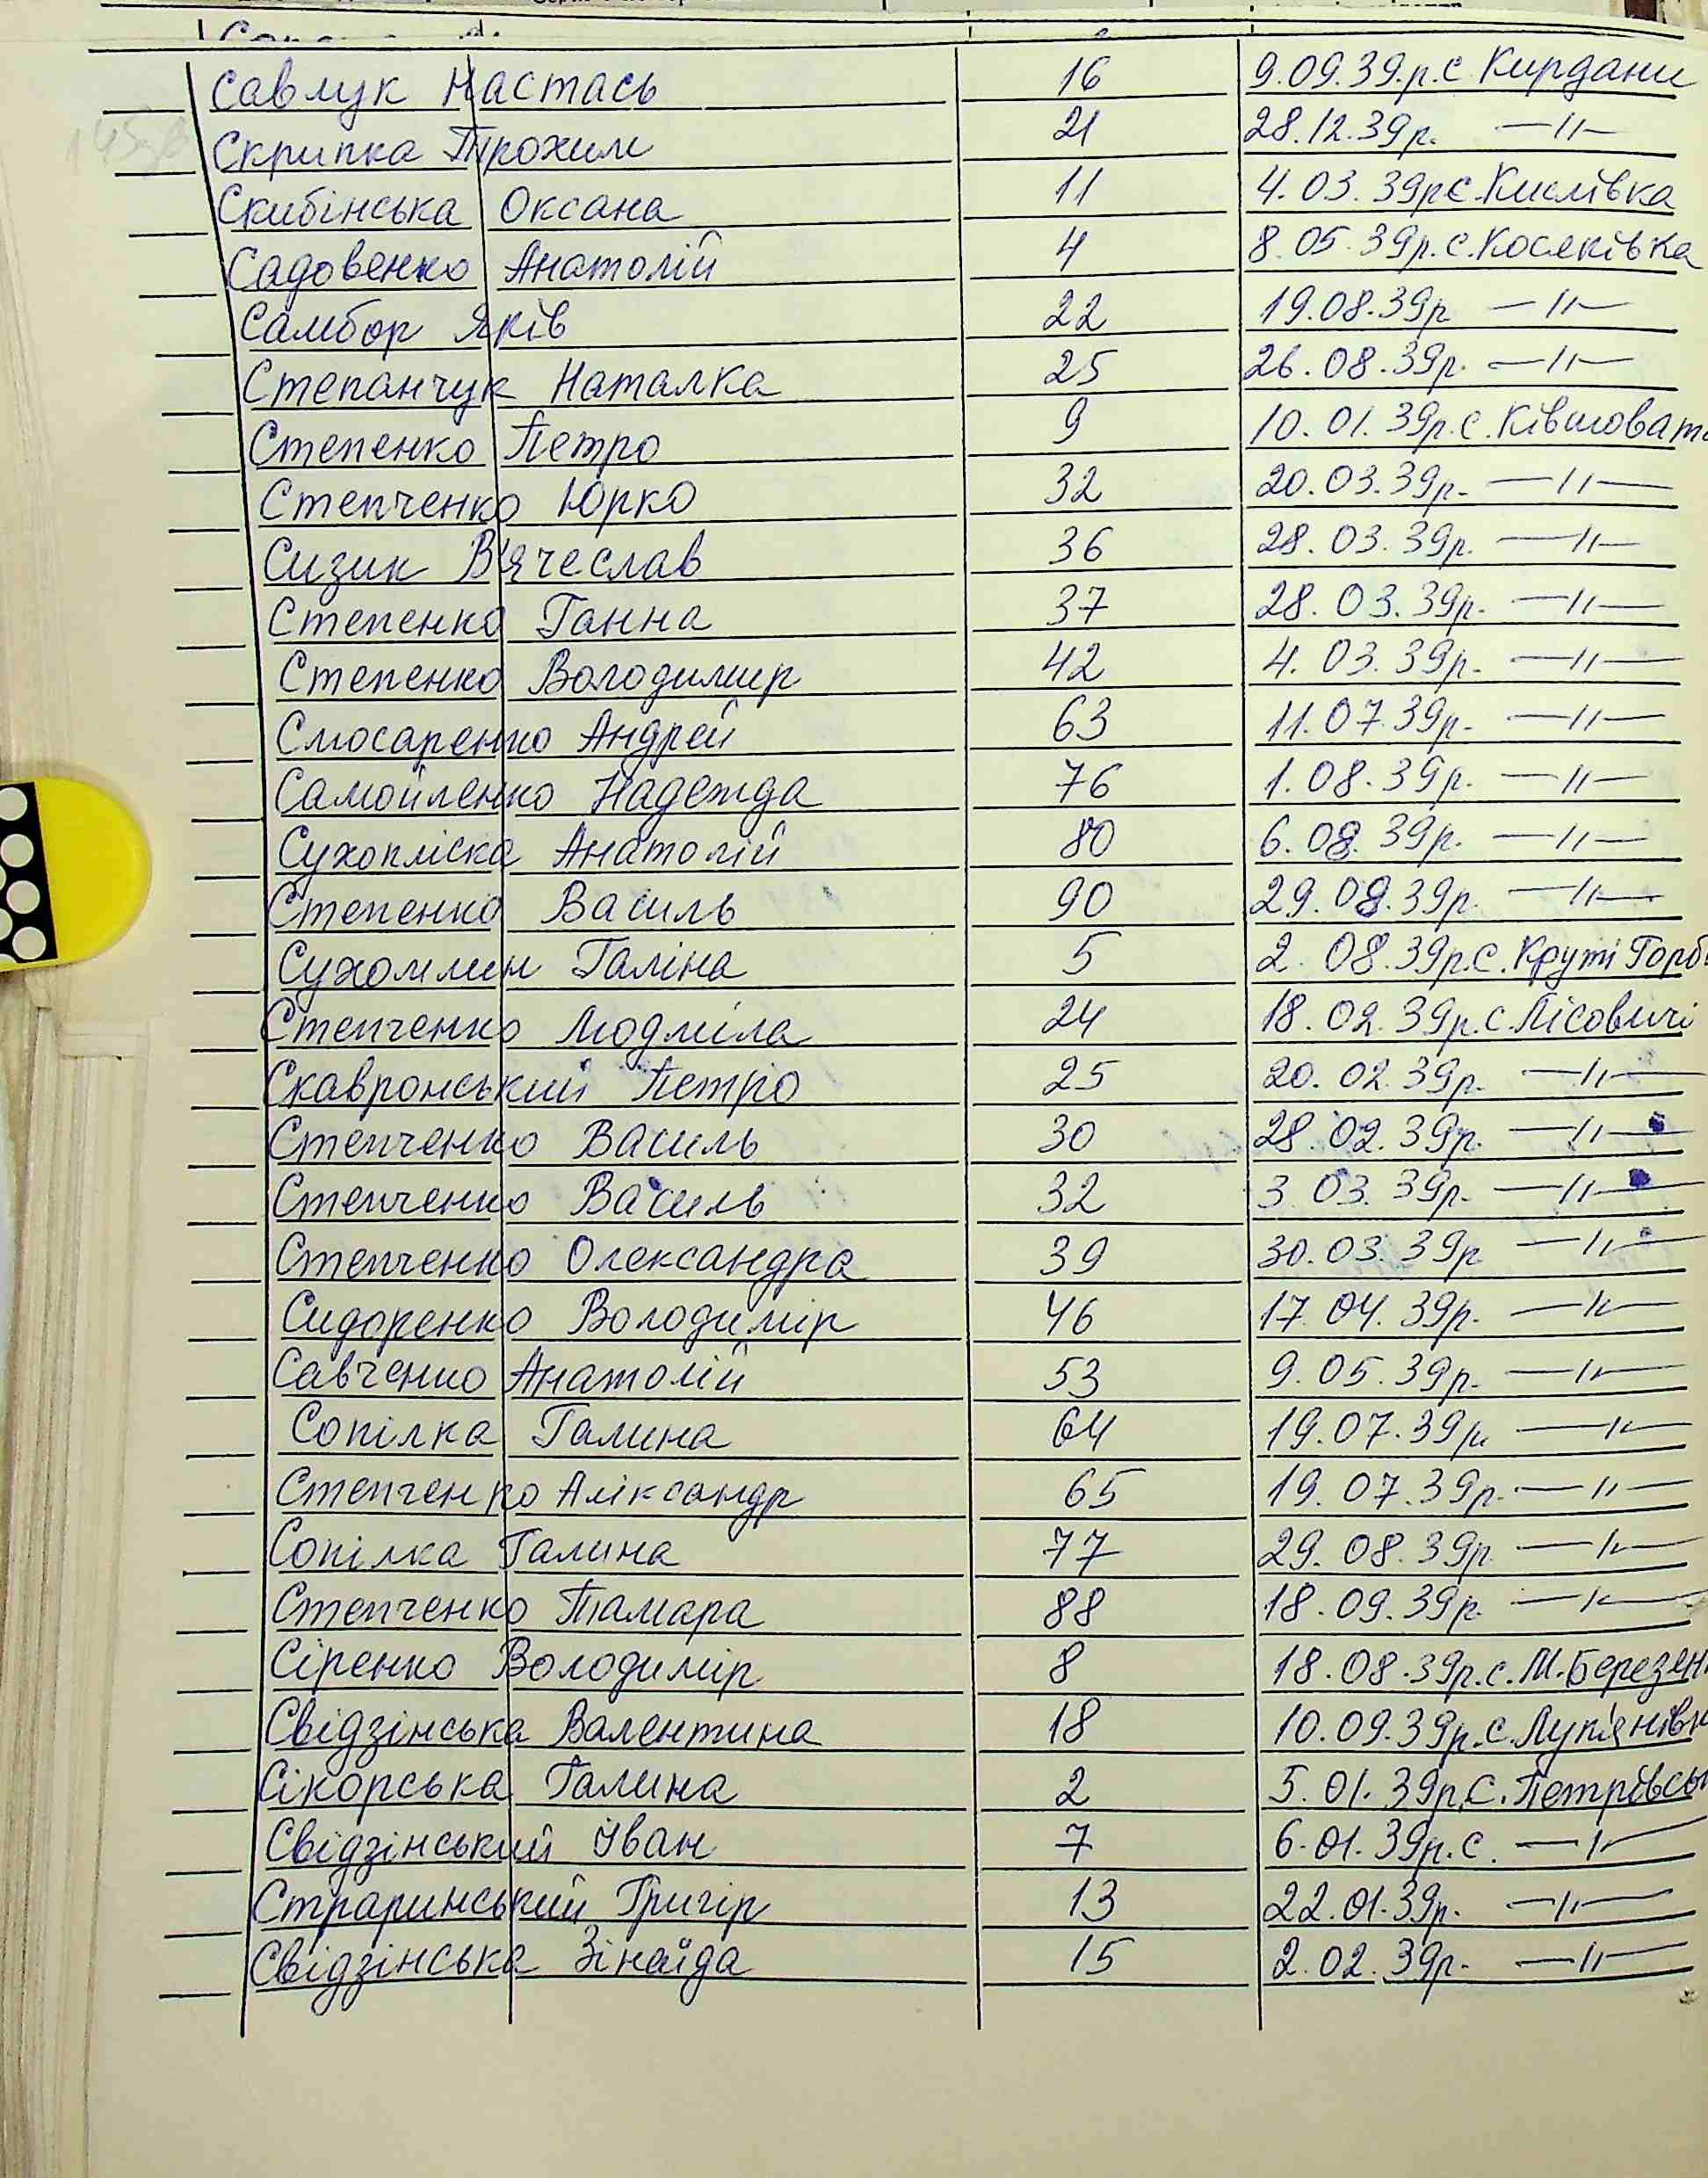 Савлук Настась 16 9.09.39.р.с. Кирдани
Скрипка Трохим 21 28.12.39р. —〃—
Скибінська Оксана 11 4.03.39р с. Кислівка
Садовенко Анатолій 4 8.05.39р.с. Косяківка
Самбор Яків 22 19.08.39р —〃—
Степанчук Наталка 25 26.08.39р. —〃—
Степенко Петро 9 10.01.39р.с. Ківшовата
Степченко Юрко 32 20.03.39р. —〃—
Сизик В'ячеслав 36 28.03.39р. —〃—
Степенко Ганна 37 28.03.39р. —〃—
Степенко Володимир 42 4.03.39р. —〃—
Слюсаренко Андрей 63 11.07.39р. —〃—
Самойленко Надежда 76 1.08.39р. —〃—
Сухопліска Анатолій 80 6.08.39р. —〃—
Степенко Василь 90 29.08.39р. —〃—
Сухомлин Галіна 5 2.08.39р.с. Круті Горб
Степченко Людміла 24 18.02.39р.с. Лісовичі
Скавронський Петро 25 20.02.39р. —〃—
Степченко Василь 30 28.02.39р. —〃—
Степченко Василь 32 3.03.39р. —〃—
Степченко Олександра 39 30.03.39р —〃—
Сидоренко Володимір 46 17.04.39р. —〃—
Савченко Анатолій 53 9.05.39р. —〃—
Сопілка Галина 64 19.07.39р. —〃—
Степченко Аліксандр 65 19.07.39р. —〃—
Сопілка Галина 77 29.08.39р —〃—
Степченко Тамара 88 18.09.39р. —〃—
Сіренко Володимір 8 18.08.39р.с. М.Березян
Свідзінська Валентина 18 10.09.39р.с. Лук'янівк
Сікорська Галина 2 5.01.39р.с. Петрівсь
Свідзінський Іван 7 6.01.39р.с. —〃—
Страринський Григір 13 22.01.39р. —〃—
Свідзінська Зінаїда 15 2.02.39р. —〃—